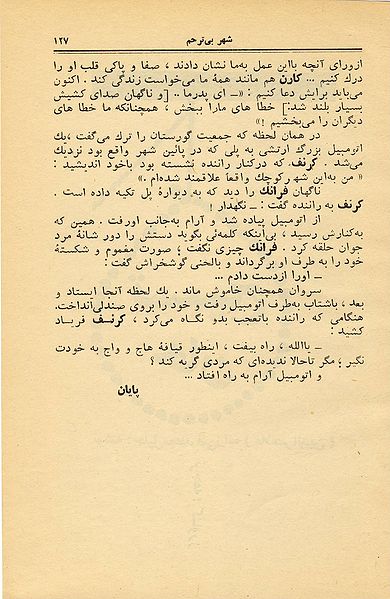 شهر بی‌ترحم ۱۲۷
ازورای آنچه بااین عمل به‌ما نشان دادند ، صفا و پاکی قلب او را
درك کنیم ... کارن هم مانند همهٔ ما می‌خواست زندگی کند . اکنون
می‌باید برایش دعا کنیم : «ــ ای پدرما .. [و ناگهان صدای کشیش
بسیار بلند شد:] خطا های مارا ببخش ، همچنانکه ما خطا های
دیگران را می‌بخشیم !»
در همان لحظه که جمعیت گورستان را ترك می‌گفت ،یك
اتومبیل بزرگ ارتشی به پلی که در پائین شهر واقع بود نزدیك
می‌شد . کرنف. که درکنار راننده نشسته بود باخود اندیشید :
« من به‌این شهر کوچك واقعا علاقمند شده‌ام .»
ناگهان فرانك را دید که به دیوارهٔ پل تکیه داده است .
کرنف به راننده گفت : ــ نگهدار !
از اتومبیل پیاده شد و آرام به‌جانب اورفت . همین که
به‌کنارش رسید ، بی‌اینکه کلمه‌ئی بگوید دستش را دور شانهٔ مرد
جوان حلقه کرد . فرانك چیزی نگفت ؛ صورت مغموم و شکستهٔ
خود را به طرف او برگرداند و بالحنی گوشخراش گفت :
ــ اورا ازدست دادم ...
سروان همچنان خاموش ماند . یك لحظه آنجا ایستاد و
بعد ، باشتاب به‌طرف اتومبیل رفت و خود را بروی صندلی‌انداخت.
هنگامی که راننده باتعجب بدو نگاه می‌کرد ، کرنف فریاد
کشید :
ــ یاالله ، راه بیفت ، اینطور قیافهٔ هاج و واج به خودت
نگیر ؛ مگر تاحالا ندیده‌ای که مردی گریه کند ؟
و اتومبیل آرام به راه افتاد ...
پایان